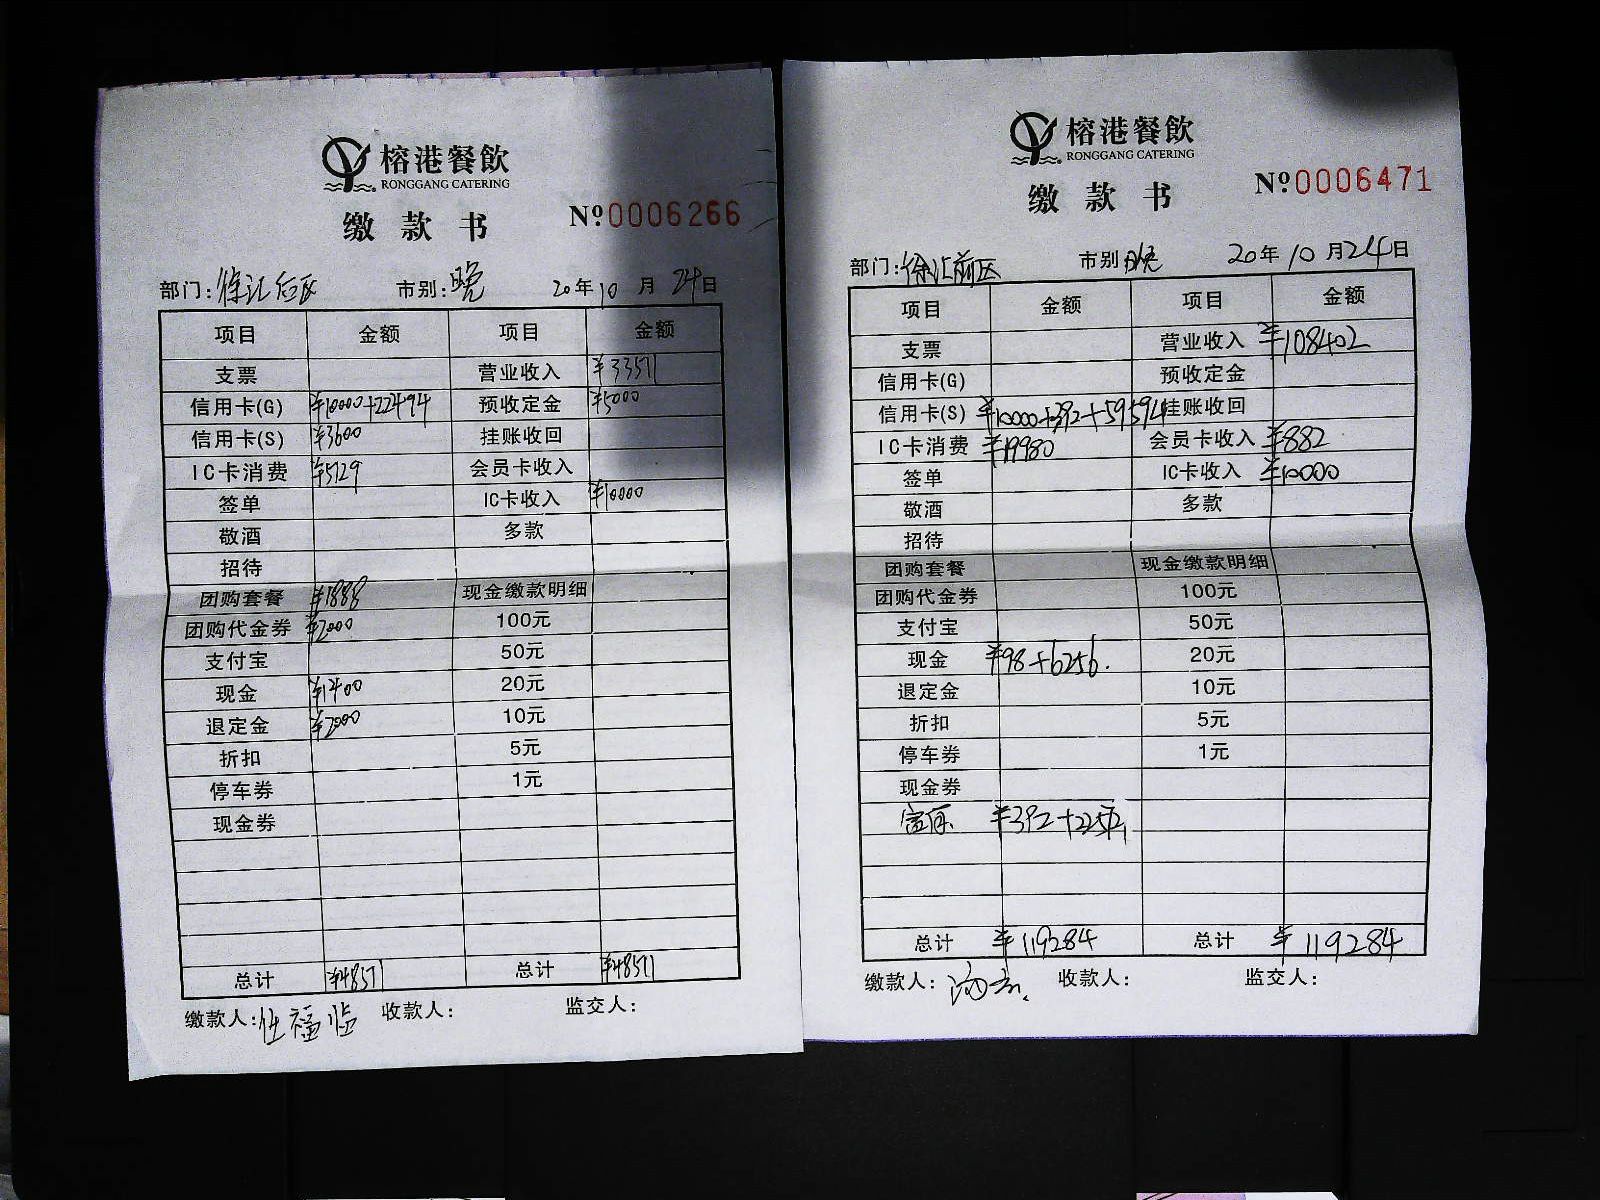 榕港餐飲
RONGGANG CATERING
缴款书
No 0006266
部门:徐汇后区 市别:晚 20年10月24日
项目 金额 项目 金额
支票 营业收入 ¥33571
信用卡(G) ¥10000+22494 预收定金 ¥5000
信用卡(S) ¥3600 挂账收回
IC卡消费 ¥5129 会员卡收入
签单 IC卡收入 ¥10000
敬酒 多款
招待
团购套餐 ¥1888 现金缴款明细
团购代金券 ¥2000 100元
支付宝 50元
现金 ¥1400 20元
退定金 ¥2000 10元
折扣 5元
停车券 1元
现金券
总计 ¥48571 总计 ¥48571
缴款人:任福临 收款人: 监交人:
榕港餐飲
RONGGANG CATERING
缴款书
No 0006471
部门:徐汇前区 市别 晚 20年10月24日
项目 金额 项目 金额
支票 营业收入 ¥108402
信用卡(G) 预收定金
信用卡(S) ¥10000+392+59594 挂账收回
IC卡消费 ¥19980 会员卡收入 ¥882
签单 IC卡收入 ¥10000
敬酒 多款
招待
团购套餐 现金缴款明细
团购代金券 100元
支付宝 50元
现金 ¥98+6256. 20元
退定金 10元
折扣 5元
停车券 1元
现金券
¥392+22572
总计 ¥119284 总计 ¥119284
缴款人: 收款人: 监交人: